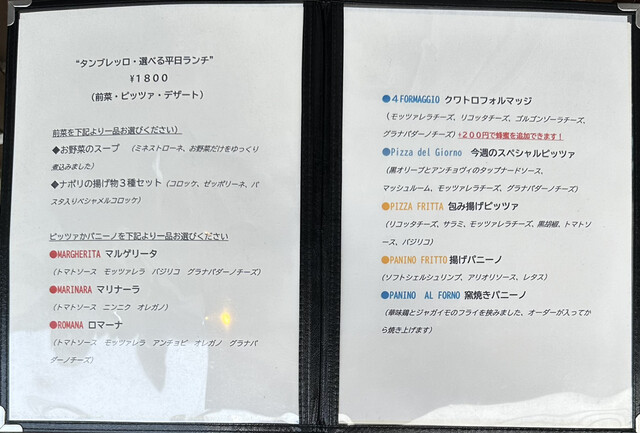 “タンブレッロ・選べる平日ランチ”
¥1800
(前菜・ピッツァ・デザート)
前菜を下記より一品お選びください)
◆お野菜のスープ (ミネストローネ、お野菜だけをゆっくり
煮込みました)
◆ナポリの揚げ物3種セット(コロッケ、ゼッポリーネ、パ
スタ入りベシャメルコロッケ)
ピッツァかパニーノを下記より一品お選びください
●MARGHERITA マルゲリータ
(トマトソース モッツァレラ バジリコ グラナパダーノチーズ)
●MARINARA マリナーラ
(トマトソース ニンニク オレガノ)
●ROMANA ロマーナ
(トマトソース モッツァレラ アンチョビ オレガノ グラナパ
ダーノチーズ)
●4 FORMAGGIO クワトロフォルマッジ
(モッツァレラチーズ、リコッタチーズ、ゴルゴンゾーラチーズ、
グラナパダーノチーズ)+200円で蜂蜜を追加できます!
●Pizza del Giorno 今週のスペシャルピッツァ
(黒オリーブとアンチョヴィのタップナードソース、
マッシュルーム、モッツァレラチーズ、グラナパダーノチーズ)
●PIZZA FRITTA 包み揚げピッツァ
(リコッタチーズ、サラミ、モッツァレラチーズ、黒胡椒、トマトソ
ース、バジリコ)
●PANINO FRITTO 揚げパニーノ
(ソフトシェルシュリンプ、アリオリソース、レタス)
●PANINO AL FORNO 窯焼きパニーノ
(華味鶏とジャガイモのフライを挟みました、オーダーが入ってか
ら焼き上げます)